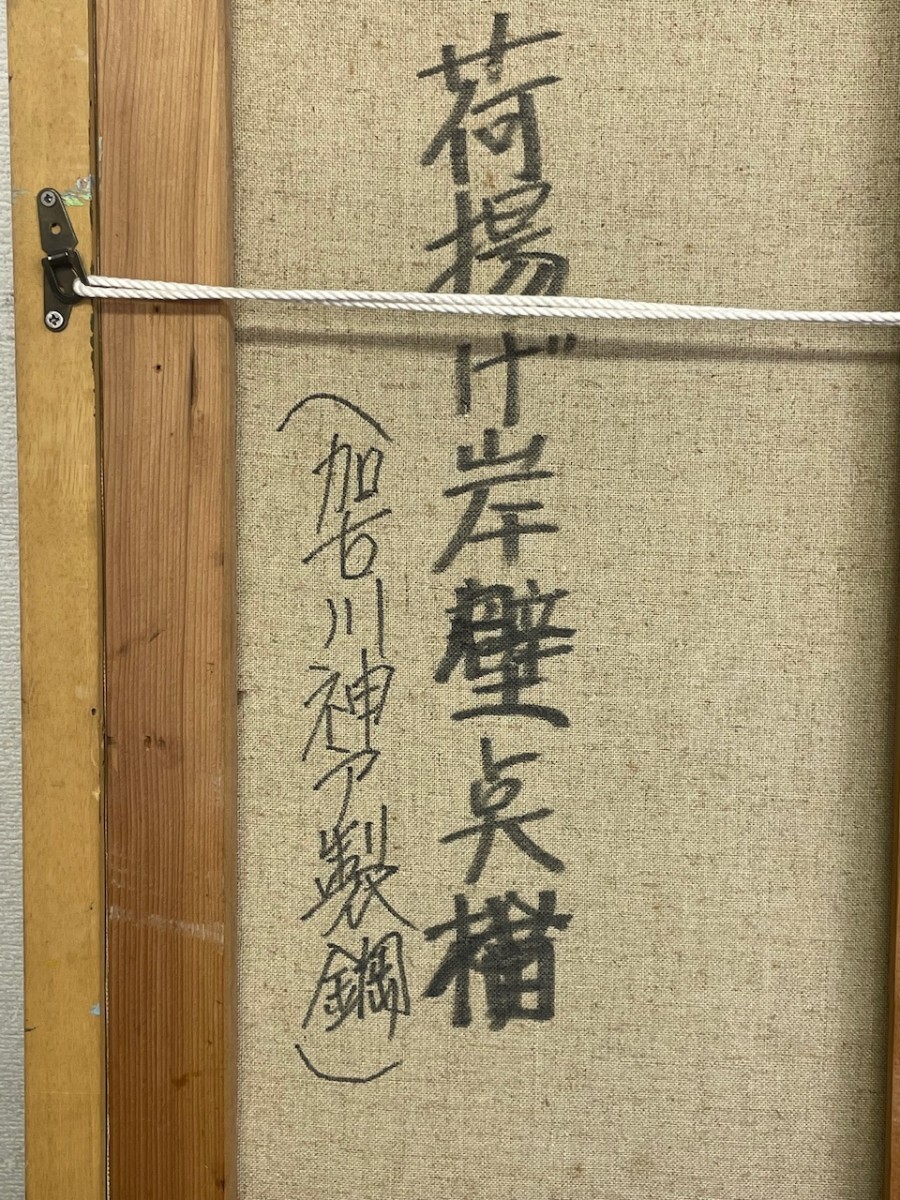 荷揚げ岸壁点描
(加古川神戸製鋼)